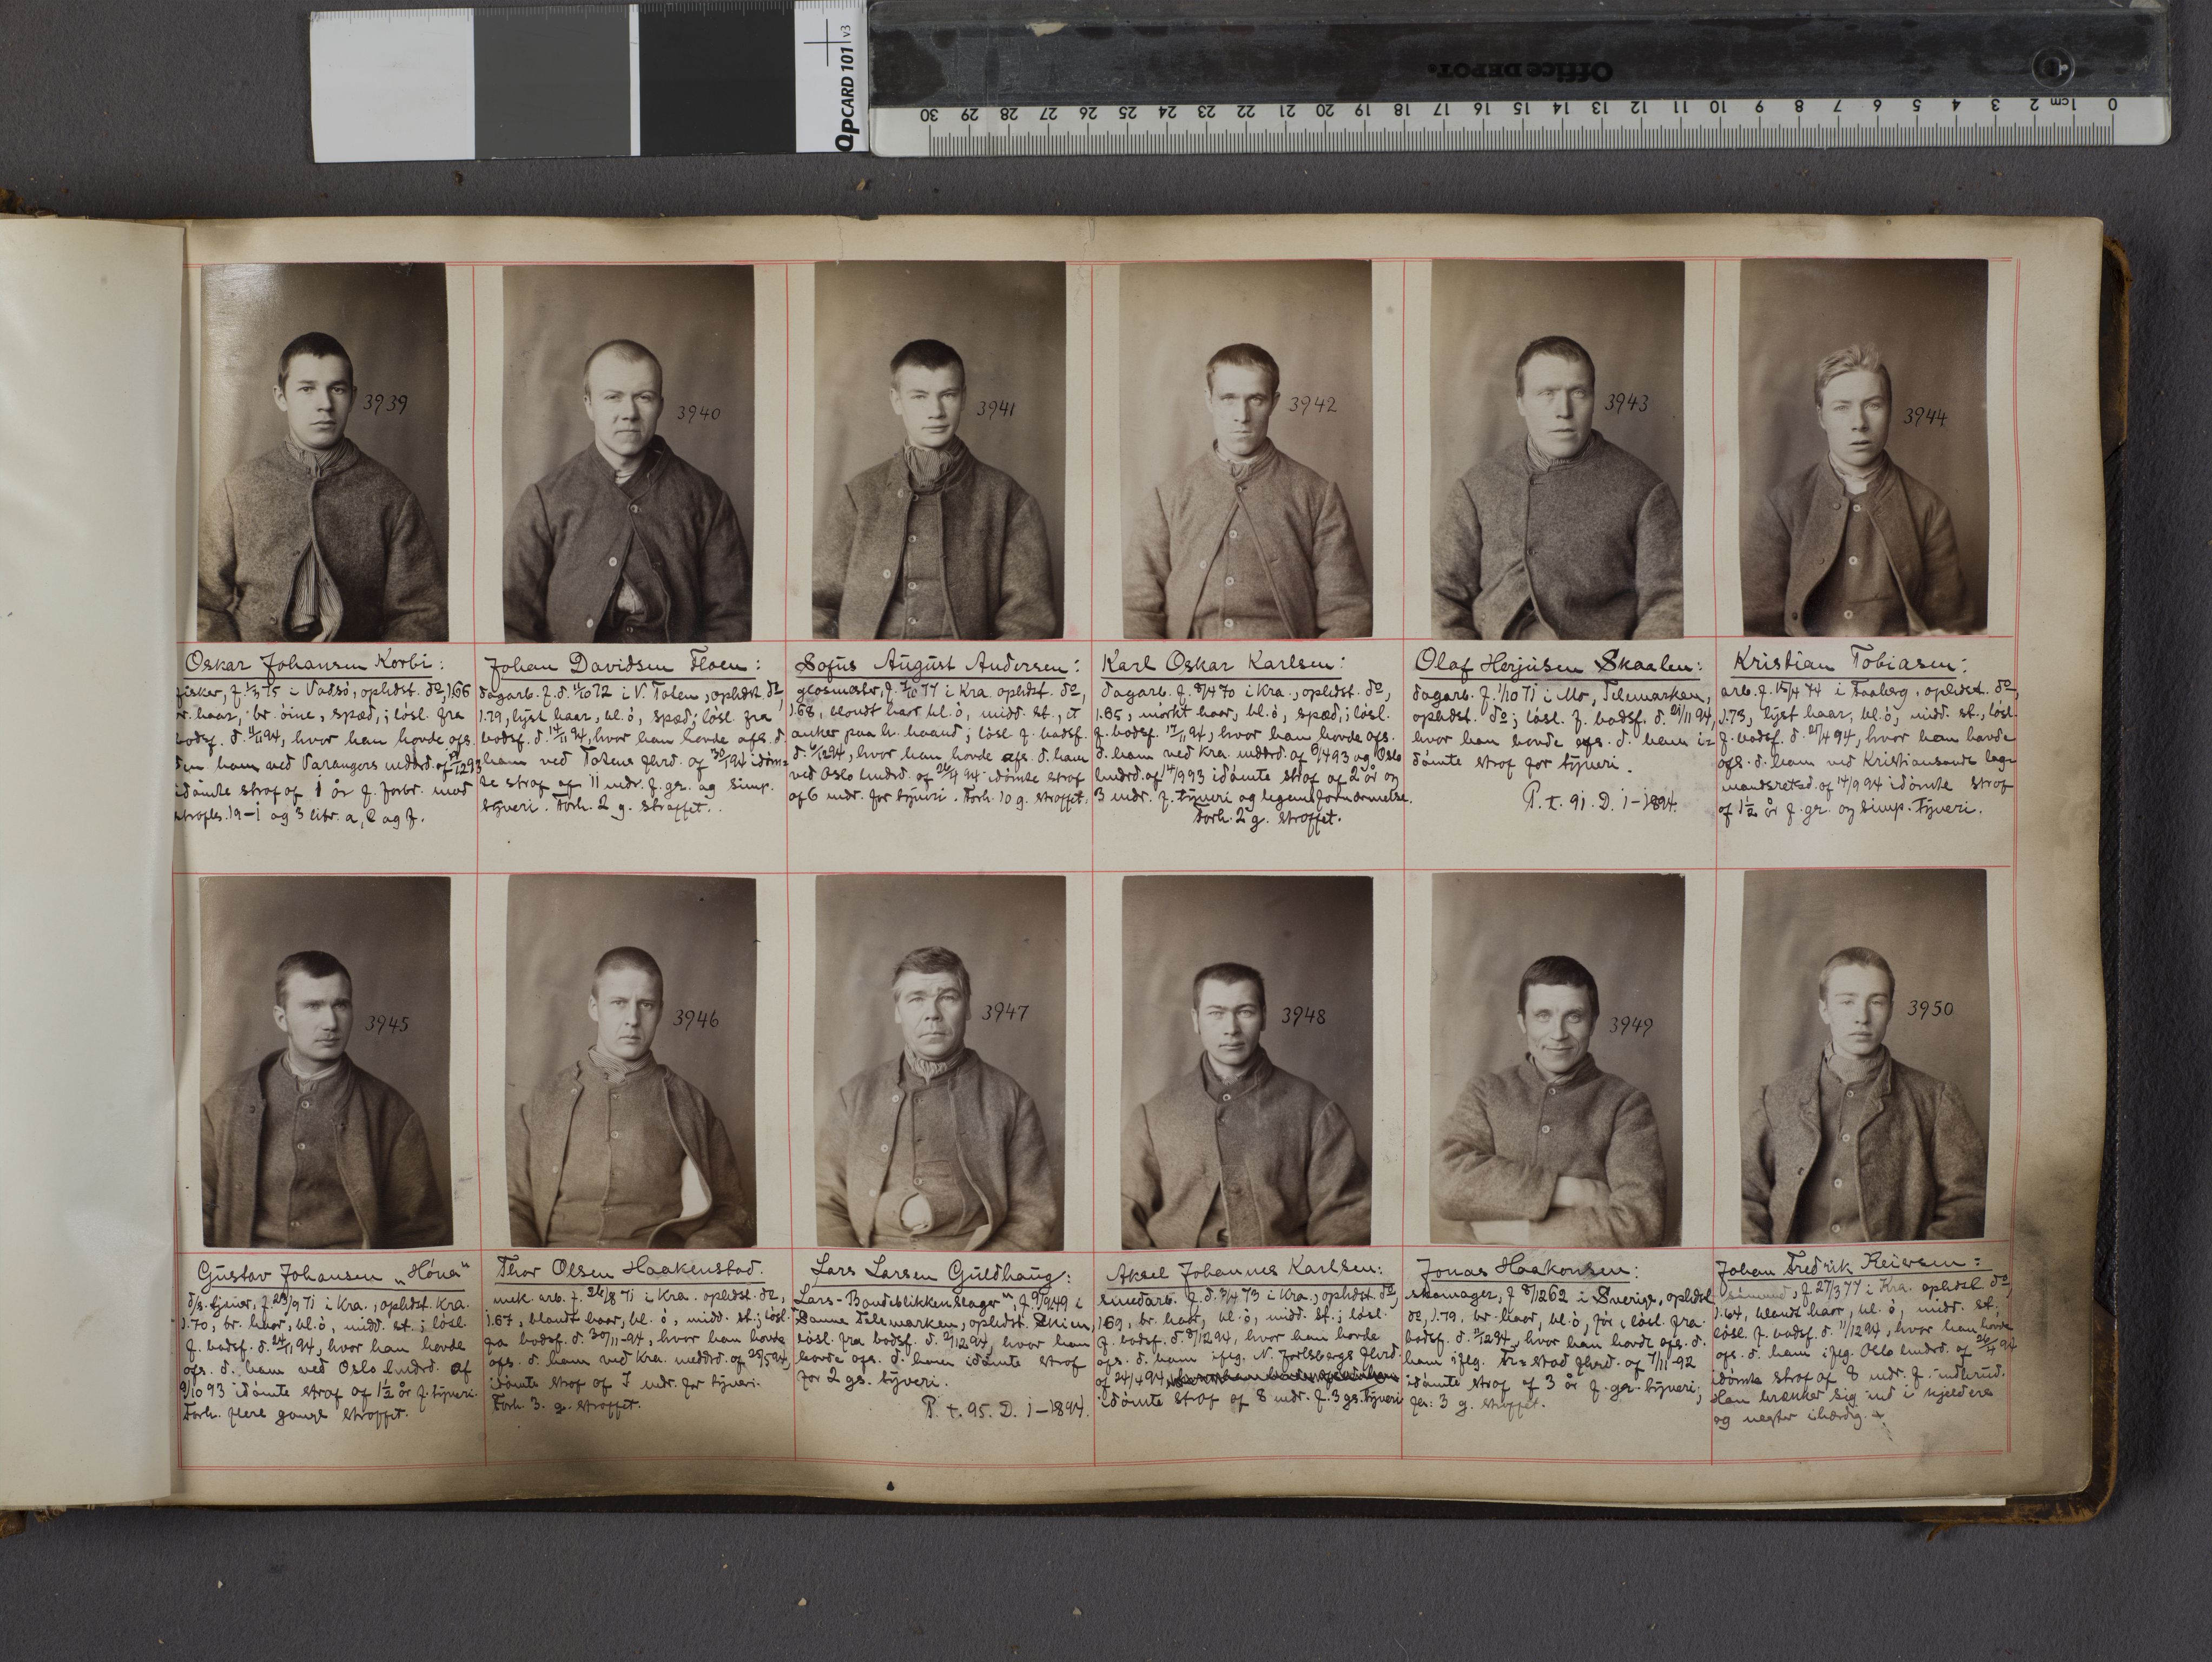 QPCARD 101 v3
Office DEPOT.
0 1 cm 2 3 4 5 6 7 8 9 10 11 12 13 14 15 16 17 18 19 20 21 22 23 24 25 26 27 28 29 30
3939
3940
3941
3942
3943
3944
Oskar Johansen Korbi:
fisker, f. 1/3 75 i Vadsö, opholdst. do, 1.66
br. haar, br. öine, spæd,; lösl. fra
bodsf. d. 11/11 94, hvor han havde afs.
den ham ved Varangers meddrd. af 17/12 93
idömte straf af 1 år f. forbr. mod
straffes. 19-1 og 3 litr. a, e og f.
Johan Davidsen Floen:
dagarb. f. d. 11/10 72 i V. Toten, opholdst. do,
1.79, lyst haar, bl. ö, spæd; lösl. fra
bodsf. d. 14/11 94, hvor han havde afs. d.
ham ved Totens hrd. af 30/1 94 idöm=
te straf af 11 mdr. f. gr. og simp.
tyveri. Forh. 2 g. straffet.
Sofus August Andersen:
glasmester, f. 7/10 77 i Kra. opholdst. do,
1.68, blondt haar bl. ö, midd. st., et
anker paa h. haand; lösl. f. bodsf.
d. 4/12 94, hvor han havde afs. d. ham
ved Oslo lmdrd. af 26/4 94 idömte straf
af 6 mdr. for tyveri. Forh. 10 g. straffet.
Karl Oskar Karlsen:
dagarb. f. 8/4 70 i Kra., opholdst. do,
1.65, mörkt haar, bl. ö, spæd,; lösl.
f. bodsf. 17/11 94, hvor han havde afs.
d. ham ved Kra. meddrd. af 6/4 93 og Oslo
lmdrd. af 14/9 93 idömte straf af 2 år og
3 mdr. f. tyveri og legemsfornærmelse.
Forh. 2 g. straffet.
Olaf Herjusen Skaalen:
dagarb. f. 1/10 71 i Mo, Telemarken,
opholdst. do; lösl. f. bodsf. d. 21/11 94,
hvor han havde afs. d. ham i=
dömte straf for tyveri.
P. t. 91. D. 1-1894.
Kristian Tobiasen:
arb. f. 15/4 74 i Faaberg, opholdst. do,
1.73, lyst haar, bl. ö, midd. st., lösl.
f. bodsf. d. 21/4 94, hvor han havde
afs. d. ham ved Kristiansands lag=
mandsretsd. af 14/9 94 idömte straf
af 1 1/2 år f. gr. og simp. tyveri.
3945
3946
3947
3948
3949
3950
Gustav Johansen "Höna"
d/s. tjener, f. 23/9 71 i Kra., opholdst. Kra.
1.70, br. haar, bl. ö, midd. st.; lösl.
f. bodsf. d. 24/11 94, hvor han havde
afs. d. ham ved Oslo lmdrd. af
9/10 93 idömte straf af 1 1/2 år f. tyveri.
Forh. flere gange straffet.
Thor Olsen Haakenstad.
mek. arb. f. 26/8 71 i Kra. opholdst. do,
1.67, blondt haar, bl. ö, midd. st.; lösl.
fra bodsf. d. 30/11-94, hvor han havde
afs. d. ham ved Kra. meddrd. af 25/5 94
idömte straf af 7 mdr. for tyveri.
Forh. 3. g. straffet.
Lars Larsen Guldhaug:
Lars-Bandeblikkenslager", f. 9/9 49 i
Sanne Telemarken, opholdst. Skien,
lösl. fra bodsf. d. 2/12 94, hvor han
havde afs. d. ham idömte straf
for 2 gs. tyveri.
P. t. 95. D. 1-1894.
Aksel Johannes Karlsen:
smedarb. f. d. 3/4 73 i Kra., opholdst. do,
1.69, br. haar, bl. ö, midd. st.; lösl.
f. bodsf. d. 8/12 94, hvor han havde
afs. d. ham iflg. N. Jarlsbergs hrd.
af 24/4 94
idömte straf af 8 mdr. f. 3 gs. tyveri
Jonas Haakonsen:
skomager, f. 8/12 62 i Sverige, opholdst.
do, 1.79, br. haar, bl. ö, för; lösl. fra
bodsf. d. 2/12 94, hvor han havde afs. d.
ham iflg. Fr=stad hrd. af 7/11-92
idömte straf af 3 år f. gr. tyveri;
før: 3 g. straffet.
Johan Fredrik Reiersen=
sömand, f. 27/3 77 i Kra. opholdst. do,
1.64, blondt haar, bl. ö, midd. st.,
lösl. f. bodsf. d. 11/12 94, hvor han havde
afs. d. ham iflg. Oslo lmdrd. af 26/4 94
idömte straf af 8 mdr. f. indbrud.
Han brækker sig ind i kjeldere
og negter ihærdig.